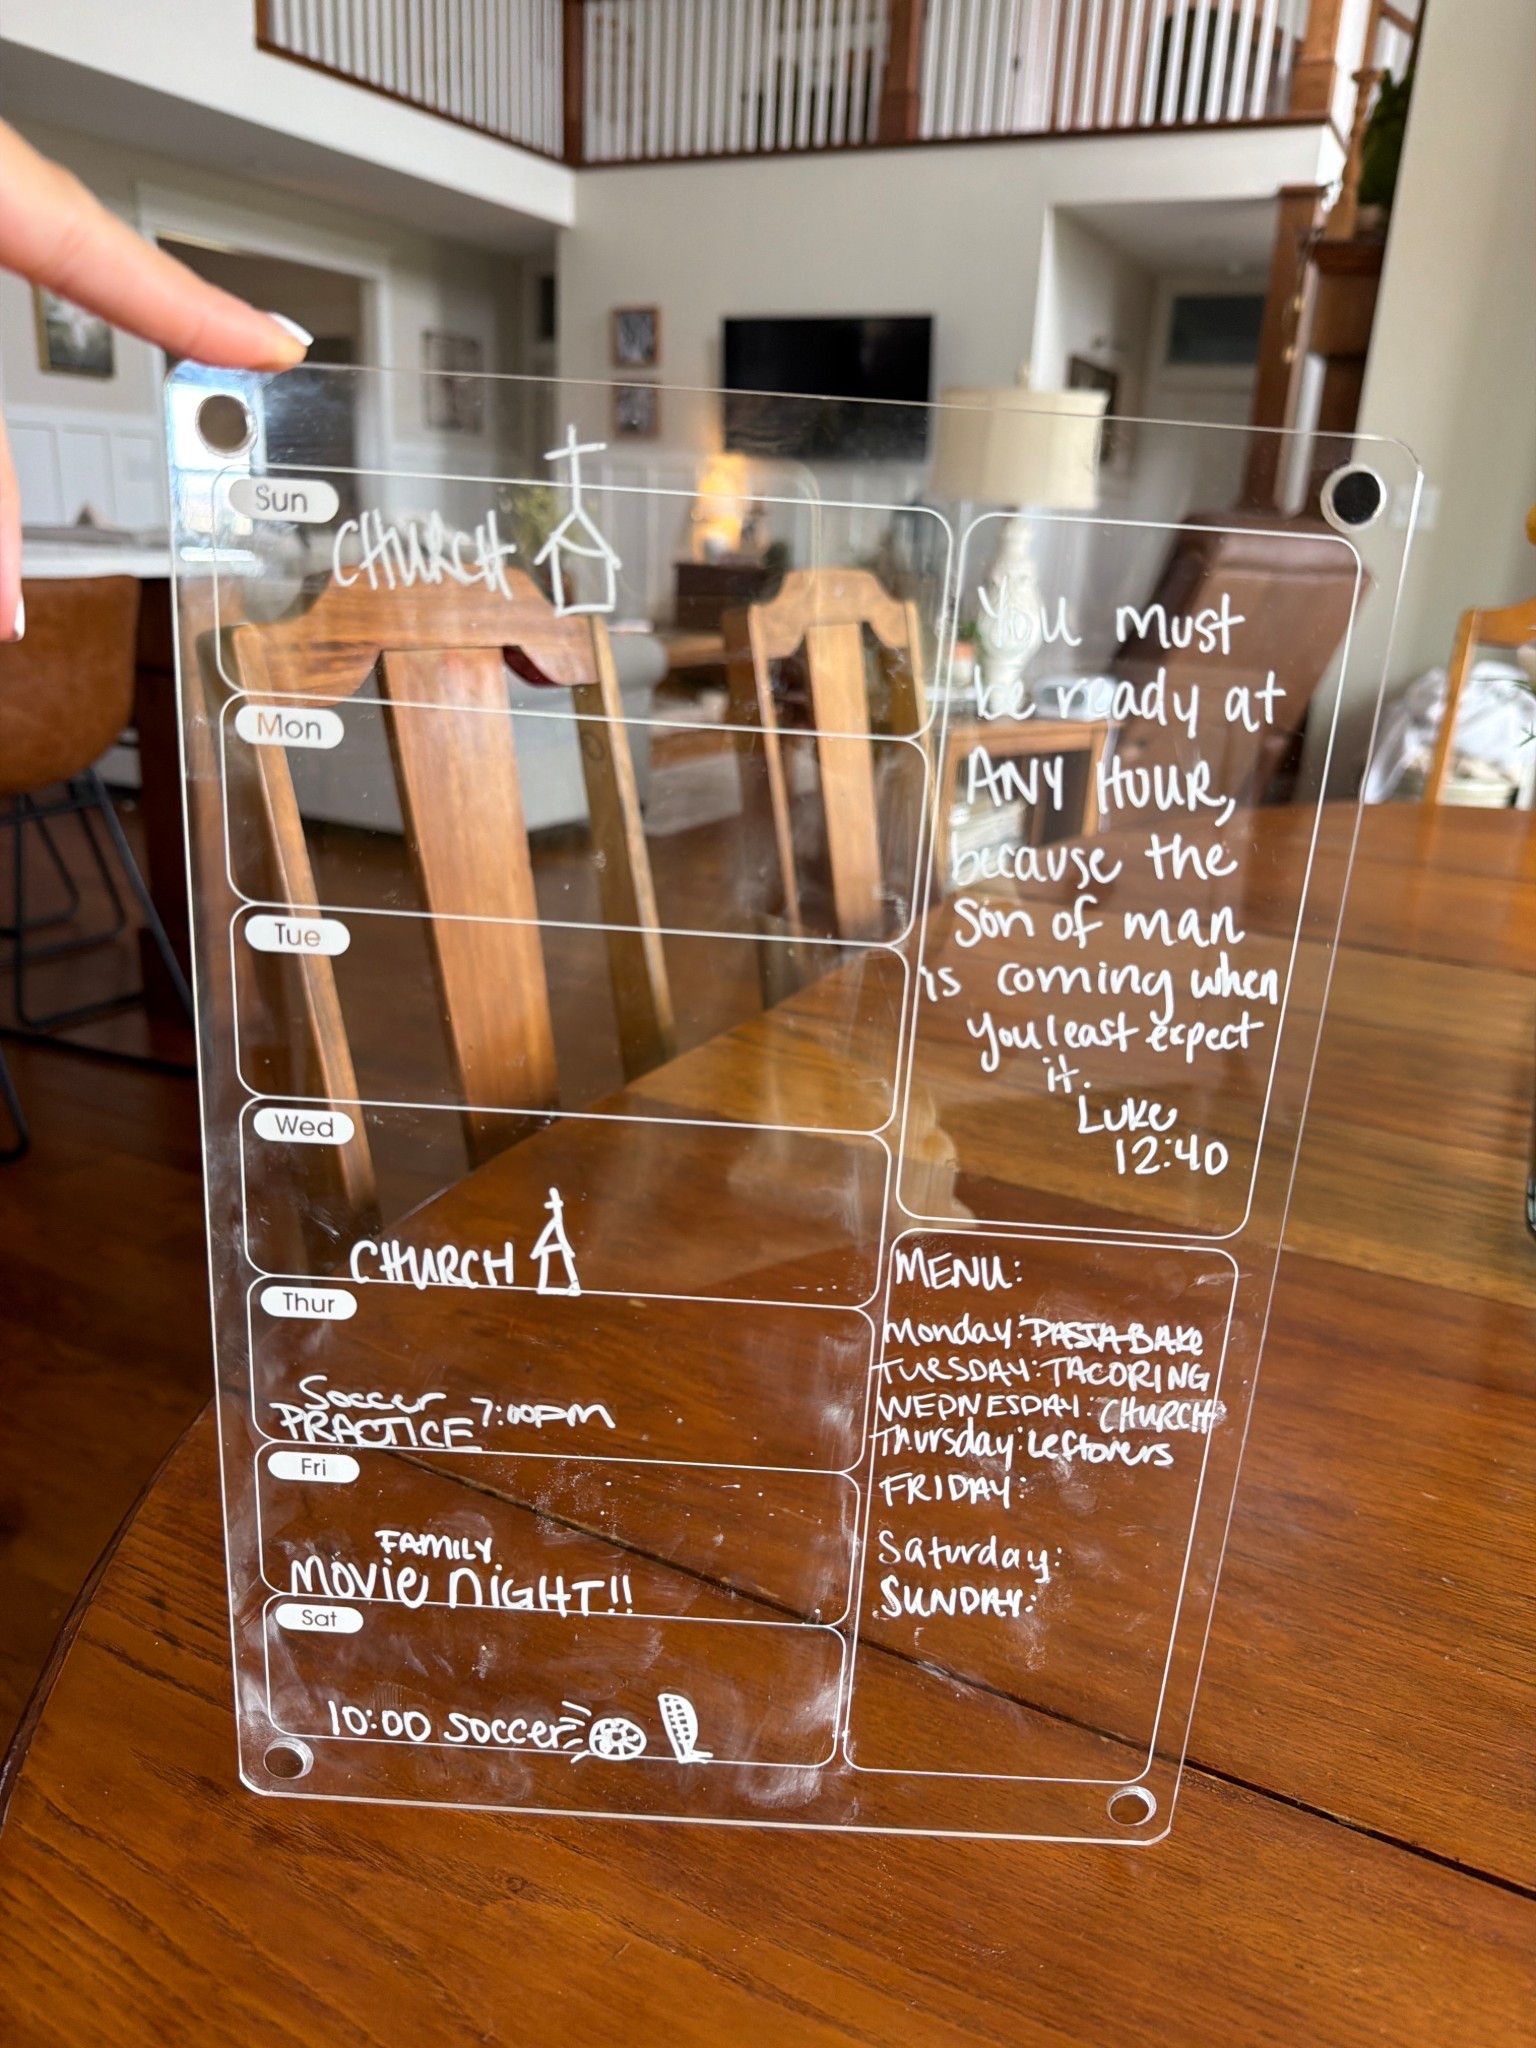 Sun
CHURCH
Mon
Tue
Wed
CHURCH
Thur
Soccer 7:00PM
PRACTICE
Fri
FAMILY
MOVIE NIGHT!!
Sat
10:00 soccer
You must
be ready at
ANY HOUR,
because the
son of man
is coming when
you least expect
it.
Luke
12:40
MENU:
Monday: PASTA BAKE
TUESDAY: TACO RING
WEDNESDAY: CHURCH
Thursday: Leftovers
FRIDAY:
Saturday:
SUNDAY: